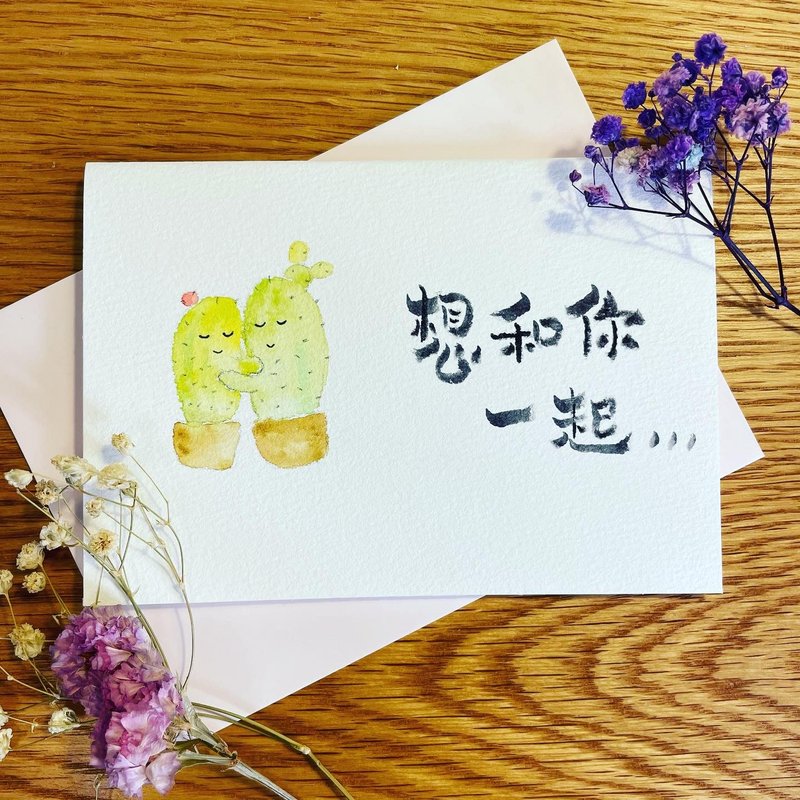 想和你
一起...